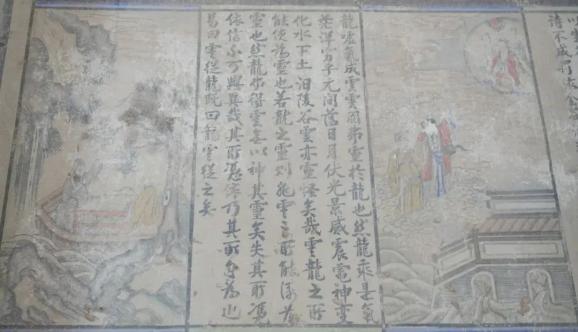 龍噓氣成雲雲固弗靈於龍也然龍乘是氣
茫洋窮乎元間薄日月伏光景感震電神變
化水下土汩陵谷雲亦靈怪矣哉雲龍之所
能使為靈也若龍之靈則非雲之所能使為
靈也然龍弗得雲無以神其靈矣失其所憑
依信不可與異哉其所憑依乃其所自為也
易曰雲從龍既曰龍雲從之矣